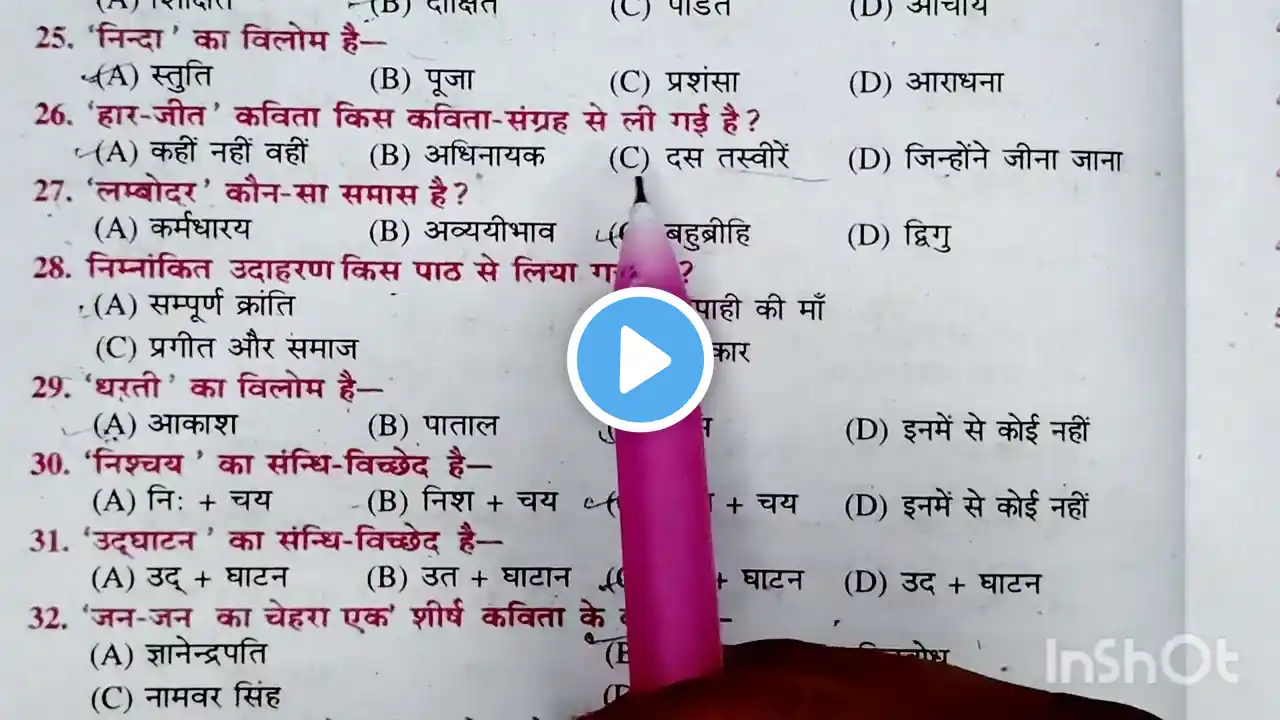 (B) दीक्षित (C) पंडित (D) आचार्य
25. 'निन्दा' का विलोम है—
(A) स्तुति (B) पूजा (C) प्रशंसा (D) आराधना
26. 'हार-जीत' कविता किस कविता-संग्रह से ली गई है?
(A) कहीं नहीं वहीं (B) अधिनायक (C) दस तस्वीरें (D) जिन्होंने जीना जाना
27. 'लम्बोदर' कौन-सा समास है?
(A) कर्मधारय (B) अव्ययीभाव बहुब्रीहि (D) द्विगु
28. निम्नांकित उदाहरण किस पाठ से लिया
(A) सम्पूर्ण क्रांति की माँ
(C) प्रगीत और समाज
29. 'धरती' का विलोम है—
(A) आकाश (B) पाताल (D) इनमें से कोई नहीं
30. 'निश्चय' का सन्धि-विच्छेद है—
(A) निः + चय (B) निश + चय + चय (D) इनमें से कोई नहीं
31. 'उद्घाटन' का सन्धि-विच्छेद है—
(A) उद् + घाटन (B) उत + घाटान + घाटन (D) उद + घाटन
32. 'जन-जन का चेहरा एक' शीर्ष कविता के
(A) ज्ञानेन्द्रपति
(C) नामवर सिंह
InShOt